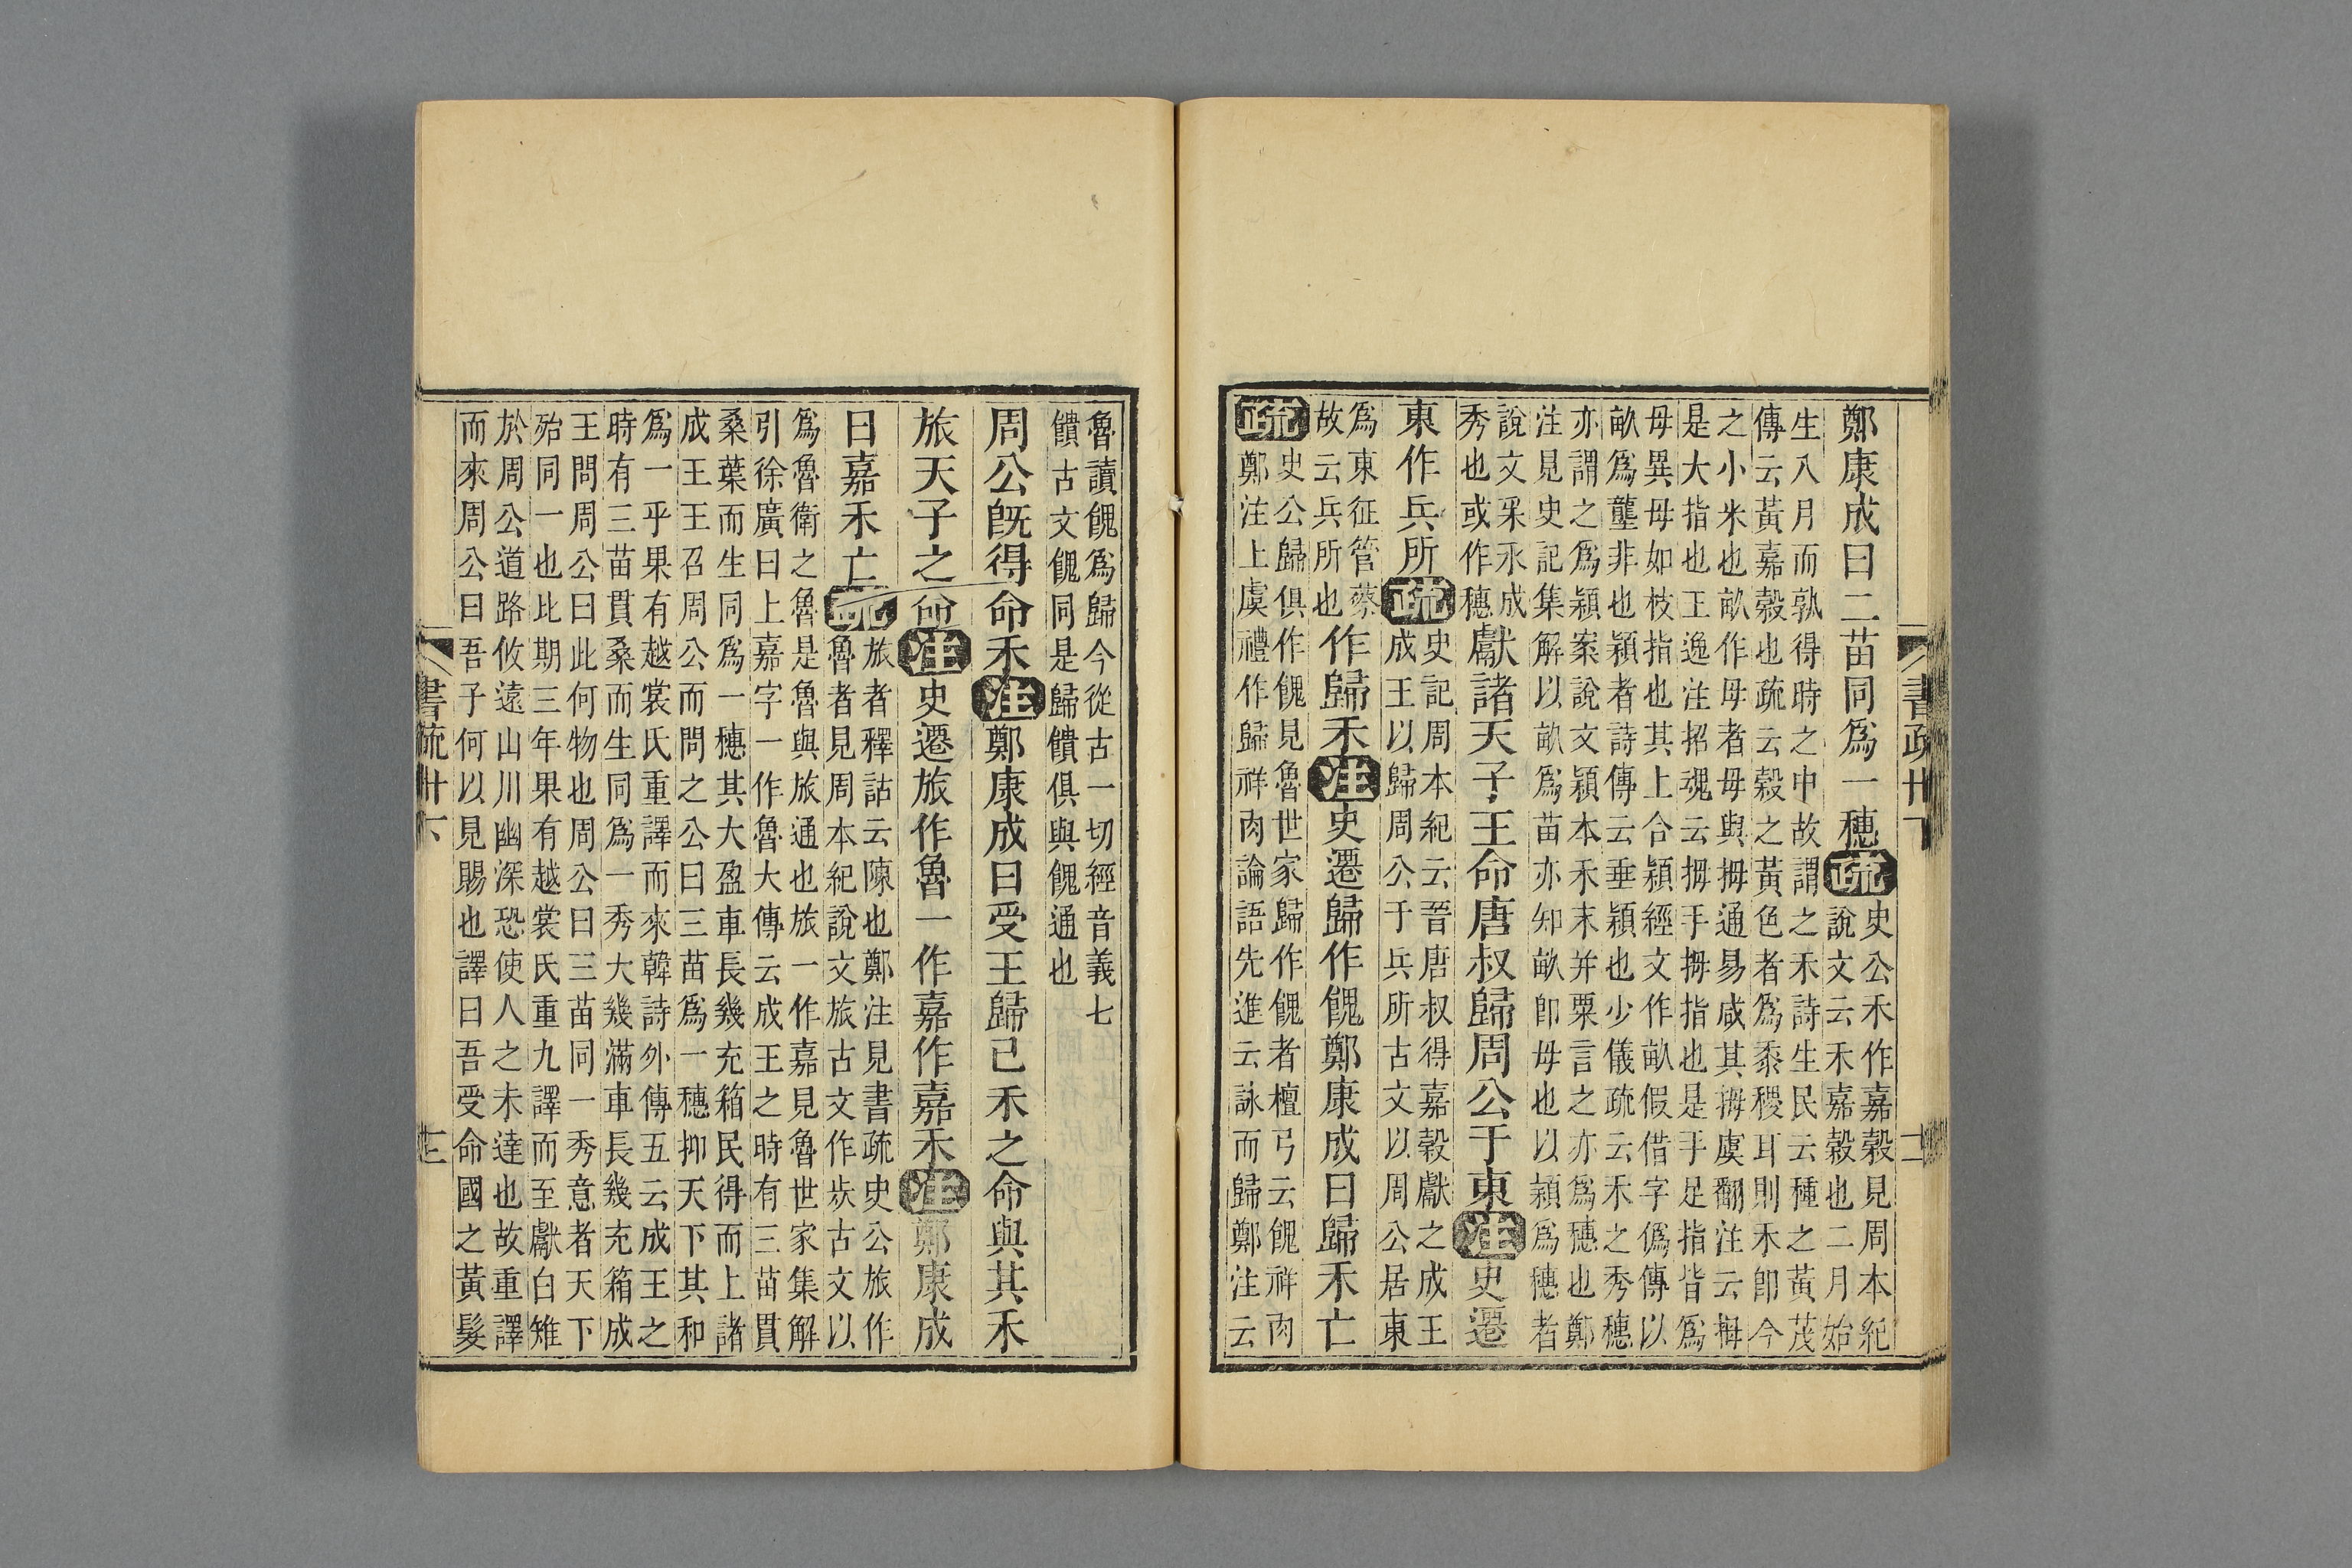 鄭康成曰二苗同爲一穗疏史公禾作嘉穀見周本紀
說文云禾嘉穀也二月始
生八月而孰得時之中故謂之禾詩生民云種之黃茂
傳云黃嘉穀也疏云穀之黃色者爲黍稷耳則禾卽今
之小米也畝作母者母與拇通易咸其拇虞翻注云拇
是大指也王逸注招魂云拇手拇指也是手足指皆爲
母異母如枝指也其上合穎經文作畝假借字僞傳以
畝爲壟非也穎者詩傳云垂穎也少儀疏云禾之秀穗
亦謂之爲穎案說文穎本禾末并粟言之亦爲穗也鄭
注見史記集解以畝爲苗亦知畝卽母也以穎爲穗者
說文采禾成
秀也或作穗獻諸天子王命唐叔歸周公于東注史遷
東作兵所疏史記周本紀云晉唐叔得嘉穀獻之成王
成王以歸周公于兵所古文以周公居東
爲東征管蔡
故云兵所也作歸禾注史遷歸作餽鄭康成曰歸禾亡
疏史公歸俱作餽見魯世家歸作餽者檀弓云餽祥肉
鄭注上虞禮作歸祥肉論語先進云詠而歸鄭注云
書疏卅下
十二
魯讀餽爲歸今從古一切經音義七
饋古文餽同是歸饋俱與餽通也
周公旣得命禾注鄭康成曰受王歸已禾之命與其禾
旅天子之命注史遷旅作魯一作嘉作嘉禾注鄭康成
曰嘉禾亡疏旅者釋詁云陳也鄭注見書疏史公旅作
魯者見周本紀說文旅古文作㫺古文以
爲魯衛之魯是魯與旅通也旅一作嘉見魯世家集解
引徐廣曰上嘉字一作魯大傳云成王之時有三苗貫
桑葉而生同爲一穗其大盈車長幾充箱民得而上諸
成王王召周公而問之公曰三苗爲一穗抑天下其和
爲一乎果有越裳氏重譯而來韓詩外傳五云成王之
時有三苗貫桑而生同爲一秀大幾滿車長幾充箱成
王問周公曰此何物也周公曰三苗同一秀意者天下
殆同一也比期三年果有越裳氏重九譯而至獻白雉
於周公道路攸遠山川幽深恐使人之未達也故重譯
而來周公曰吾子何以見賜也譯曰吾受命國之黃髮
書疏卅下
十二